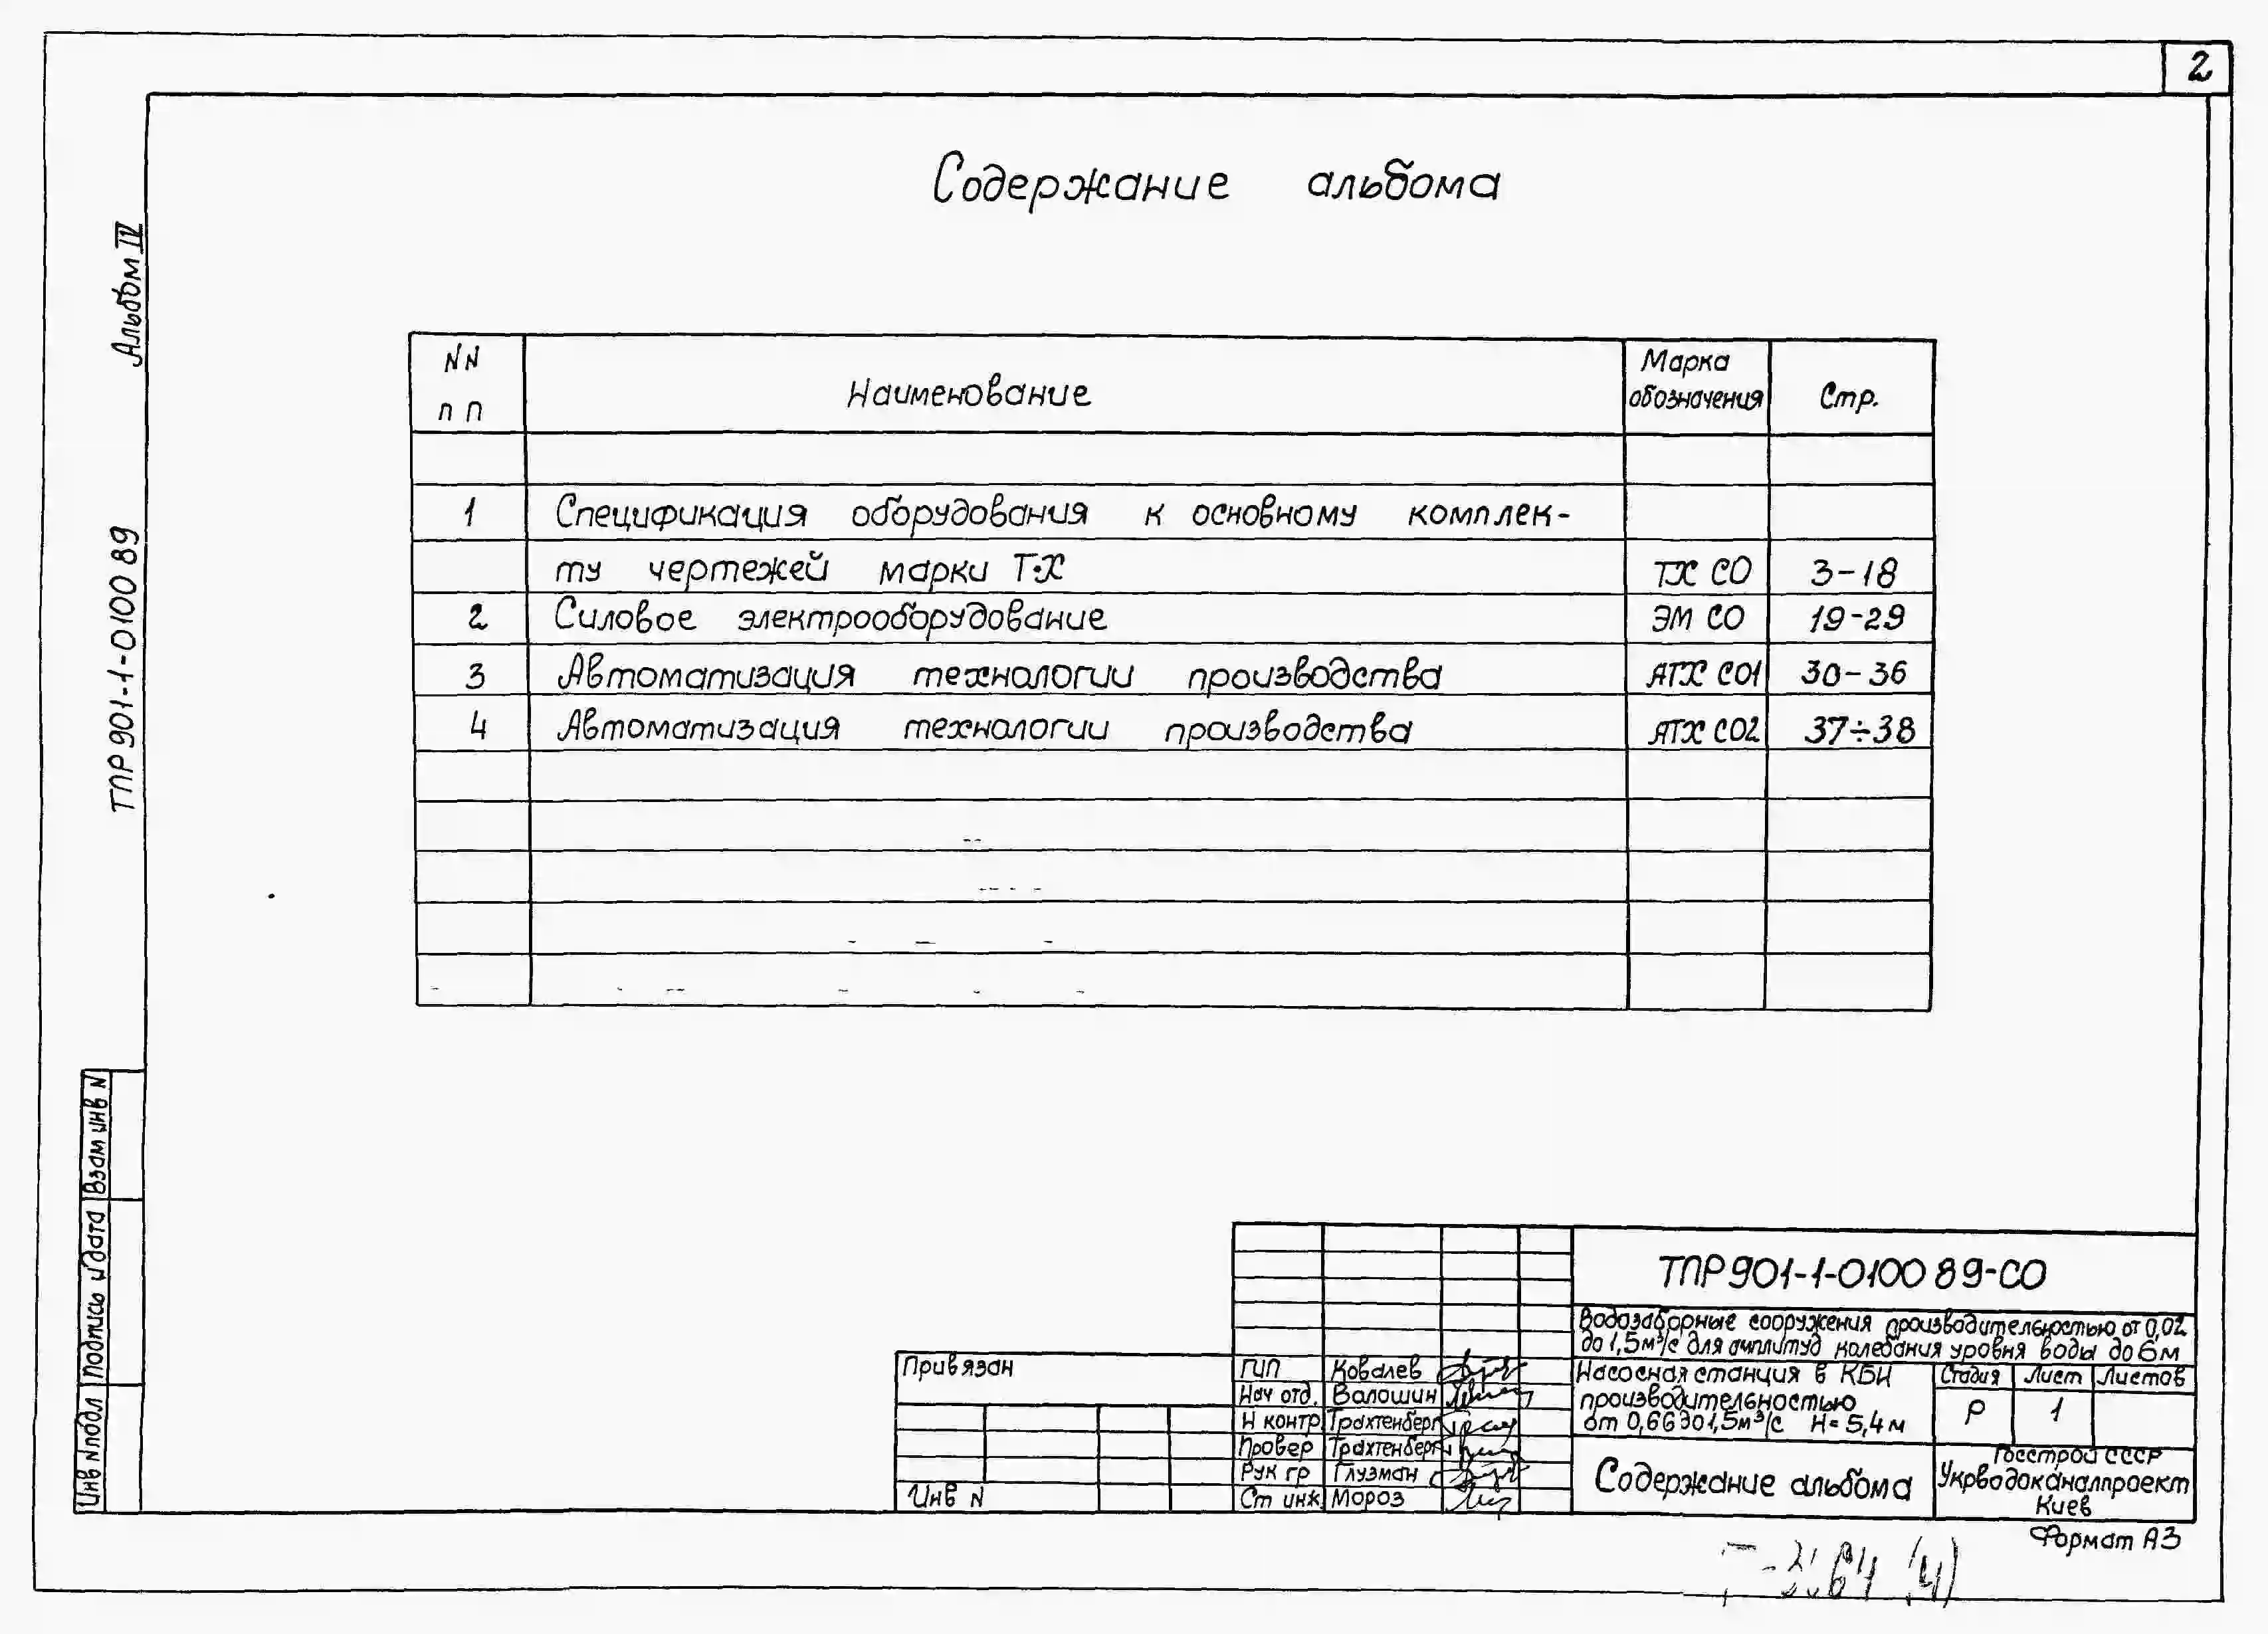 2
Содержание альбома
Альбом IV
ТПР 901-1-0100 89
NN
п п
Наименование
Марка
обозначения
Стр.
1 Спецификация оборудования к основному комплек-
ту чертежей марки ТХ ТХ СО 3-18
2 Силовое электрооборудование ЭМ СО 19-29
3 Автоматизация технологии производства АТХ СО1 30-36
4 Автоматизация технологии производства АТХ СО2 37÷38
Взам инв N
Подпись и дата
Инв N подл
ТПР 901-1-0100 89-СО
Водозаборные сооружения производительностью от 0,02
до 1,5м³/с для амплитуд колебания уровня воды до 6м
Привязан
Инв N
ГИП Ковалев
Нач отд. Валошин
Н контр Трахтенберг
Провер Трахтенберг
Рук гр Глузман
Ст инж Мороз
Насосная станция в КБН
производительностью
от 0,66 до 1,5м³/с H=5,4м
Стадия Лист Листов
Р 1
Содержание альбома
Госстрой СССР
Укрводоканалпроект
Киев
Формат А3